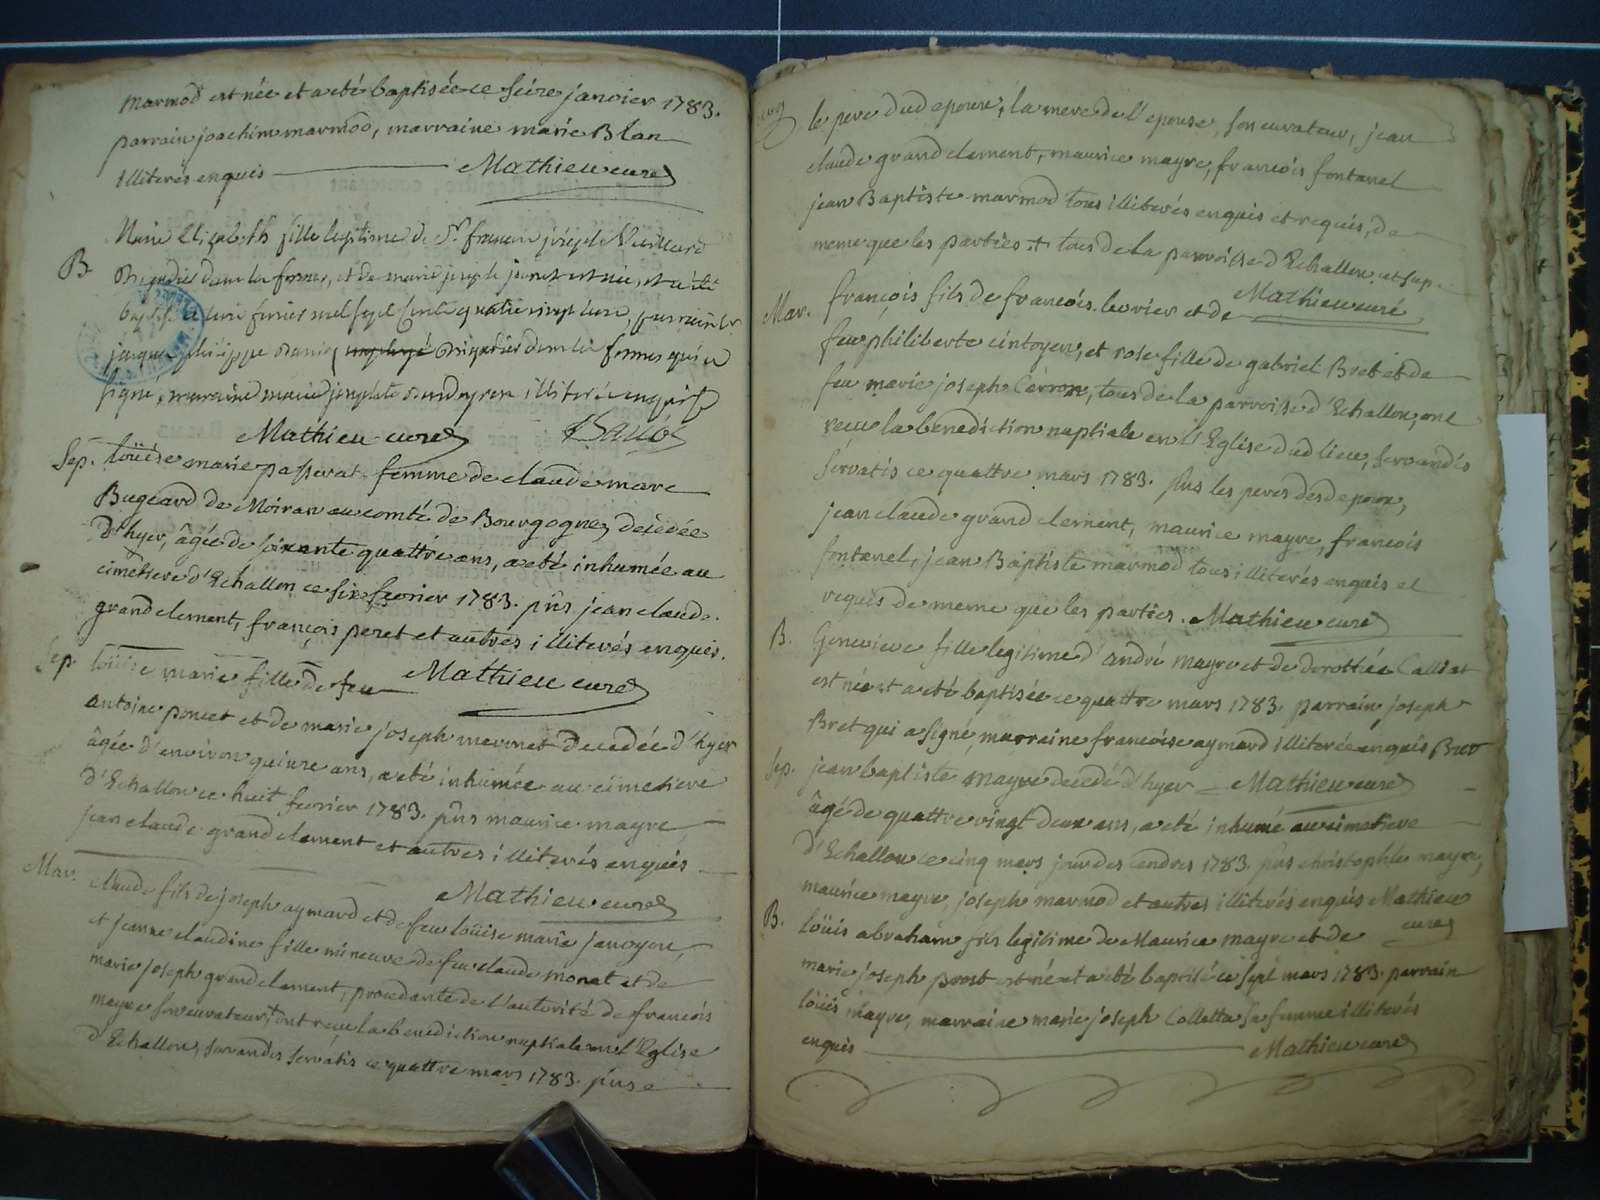 marmod est née et a eté baptisée ce seize janvier 1783.
parrain joachim marmod, marraine marie Blan
illiterés enquis Mathieu curé
B. Marie Elizabeth fille legitime de Sr. françois joseph
Brigadier dans les fermes, et de marie joseph est née, et a été
baptisé le fevrier mil sept cents quatre vingt trois, parrain Sr.
jacque philippe Brigadier dans les fermes qui a
signé, marraine marie josephte illiterée enquise
Mathieu curé
Sep. loüise marie passerat femme de claude marc
Bugeard de Moiran au comté de Bourgogne, decedée
d'hyer, âgée de soixante quattre ans, a eté inhumée au
cimetiere d'Echallon ce six fevrier 1783. pns jean claude
grand clement, françois peret et autres illiterés enquis.
Sep. loüise marie fille de feu Mathieu curé
antoine poncet et de marie joseph mermet decedée d'hyer
âgée d'environ quinze ans, a eté inhumée au cimetiere
d'Echallon ce huit fevrier 1783. pns maurice mayre
jean claude grand clement et autres illiterés enquis
Mathieu curé
Mar. claude fils de joseph aymard et de feu loüise marie
et jeanne claudine fille mineure de feu claude monat et de
marie joseph grand clement, procedante de l'autorité de francois
mayre son curateur, ont reçu la benediction nuptiale en l'Eglise
d'Echallon, servandis servatis ce quattre mars 1783. pnse
le pere dud epoux, la mere de l'epouse, son curateur, jean
claude grand clement, maurice mayre, francois fontanel
jean Baptiste marmod tous illiterés enquis et requis, de
meme que les parties + tous de la parroisse d'Echallon
Mathieu curé
Mar. françois fils de francois levrier et de
feu philiberte cintoyen, et rose fille de gabriel Bret et de
feu marie joseph Cerron, tous de la parroisse d'Echallon, ont
reçu la benediction nuptiale en l'Eglise dud lieu, servandis
servatis ce quattre mars 1783. pns les peres desd epoux,
jean claude grand clement, maurice mayre, francois
fontanel, jean Baptiste marmod tous illiterés enquis et
requis de meme que les parties. Mathieu curé
B. Genevieve fille legitime d'andré mayre et de dorothée Calliat
est née et a eté baptisée ce quattre mars 1783. parrain joseph
Bret qui a signé, marraine francoise aymard illiterée enquis Bret
Sep. jean baptiste mayre decedé d'hyer Mathieu curé
âgé de quattre vingt deux ans, a eté inhumé au cimetiere
d'Echallon ce cinq mars jour des Cendres 1783. pns christophle mayre,
maurice mayre, joseph marmod et autres illiterés enquis Mathieu
curé
B. loüis abraham fils legitime de Maurice mayre et de
marie joseph prost est né et a eté baptisé ce sept mars 1783. parrain
loüis mayre, marraine marie joseph Colletta sa femme illiterés
enquis Mathieu curé